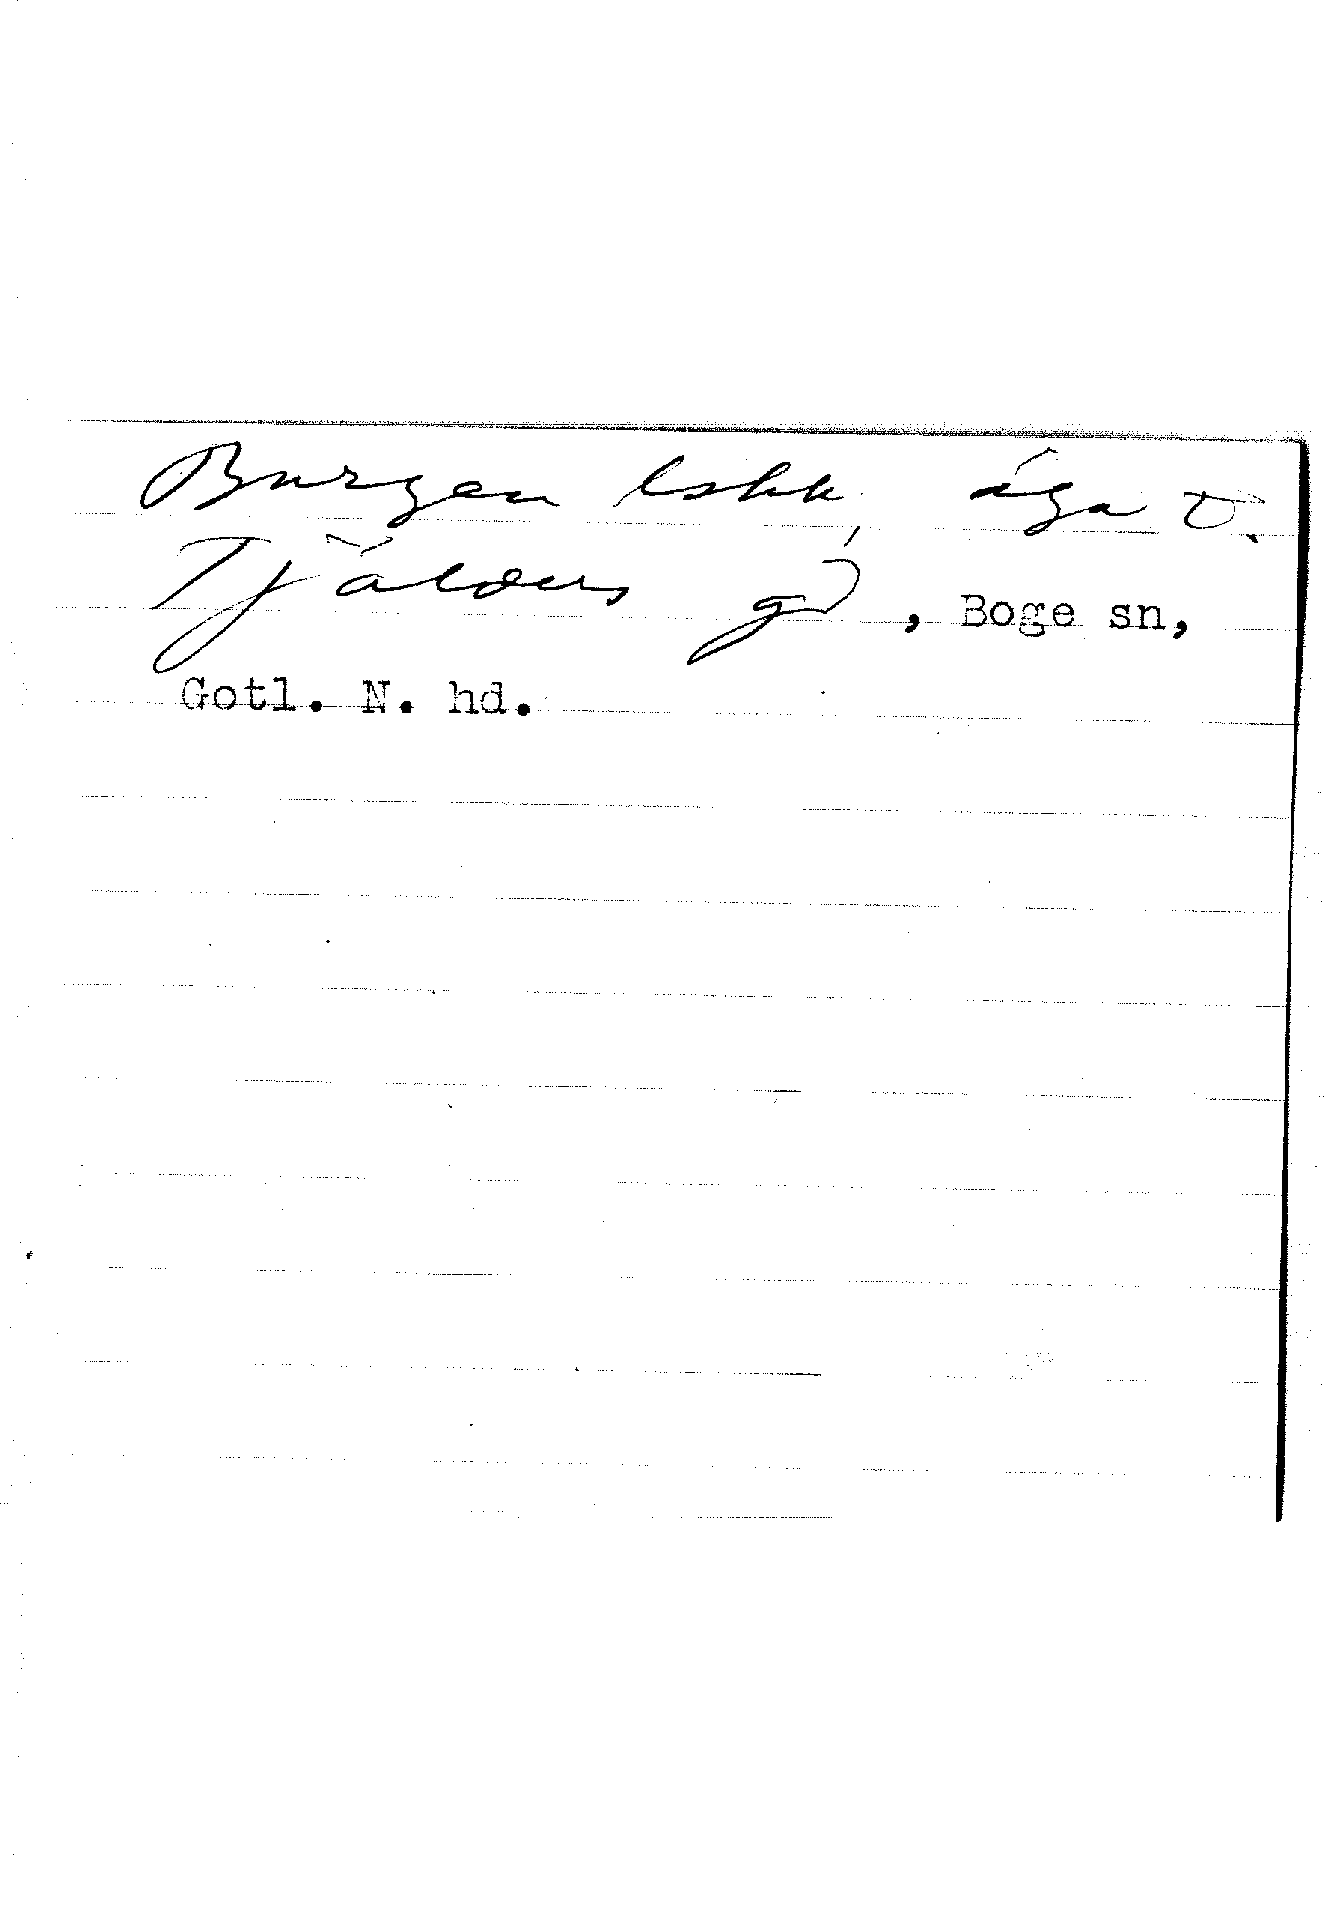 Burgen lskk, äga t.
Tjälders gd, Boge sn,
Gotl. N. hd.